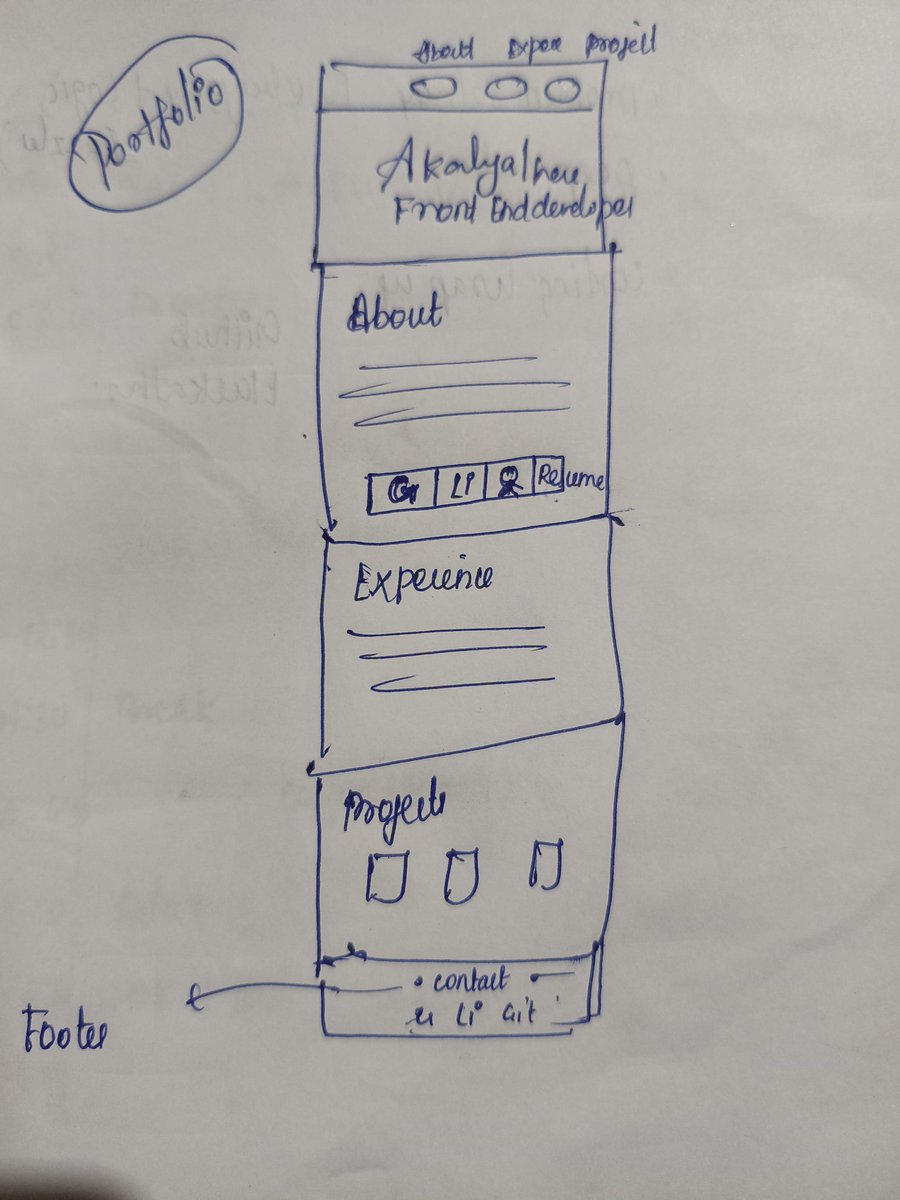 Portfolio
About Expee Project
Akalya here,
Front End developer
About
G Li Resume
Experince
Projects
• contact •
Li Git
Footer